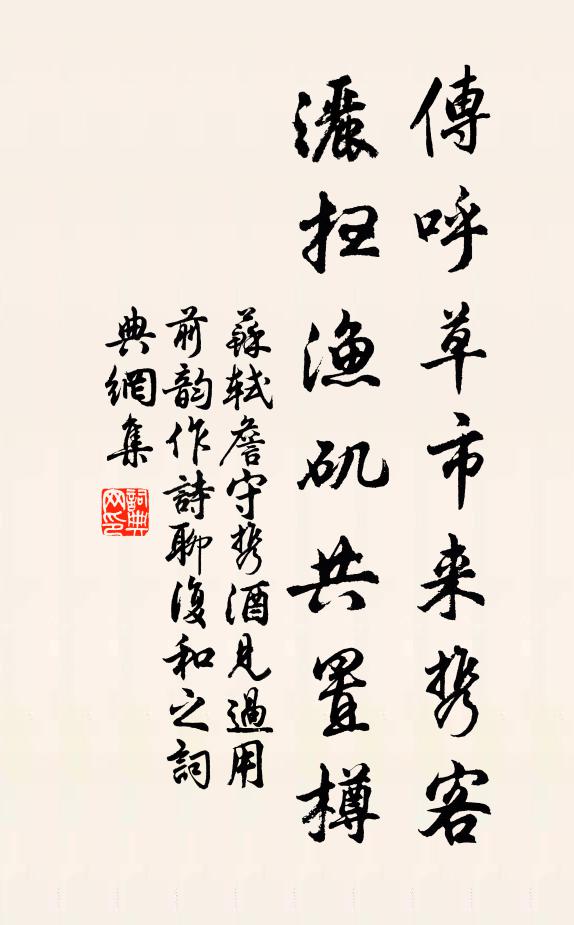 傳呼草市来携客
灑掃漁矶共置樽
蘇軾詹守携酒見過用
前韵作詩聊復和之詞
典網集
詞典网印